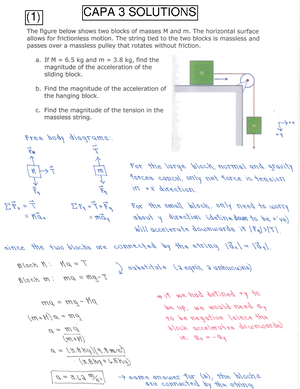 (1)
CAPA 3 SOLUTIONS
The figure below shows two blocks of masses M and m. The horizontal surface
allows for frictionless motion. The string tied to the two blocks is massless and
passes over a massless pulley that rotates without friction.
a. If M = 6.5 kg and m = 3.8 kg, find the
magnitude of the acceleration of the
sliding block.
b. Find the magnitude of the acceleration of
the hanging block.
c. Find the magnitude of the tension in the
massless string.
M
m
Free body diagrams:
M
m
For the large block, normal and gravity
forces cancel, only net force is tension
in +x direction.
For the small block, only need to worry
about y direction (define down to be +'ve)
will accelerate downwards if |Fg|>|T|.
since the two blocks are connected by the string
Block M: Ma = T
Block m: ma = mg-T
substitute (2 eqns, 2 unknowns)
ma = mg-Ma
(m+M)a = mg
a = mg
(m+M)
a = (3.8kg)(9.8m/s²)
(3.8kg+6.5kg)
* if we had defined +y to
be up, we would need ay
to be negative (since the
block accelerates downwards)
→ same answer for (b), the blocks
are connected by the string